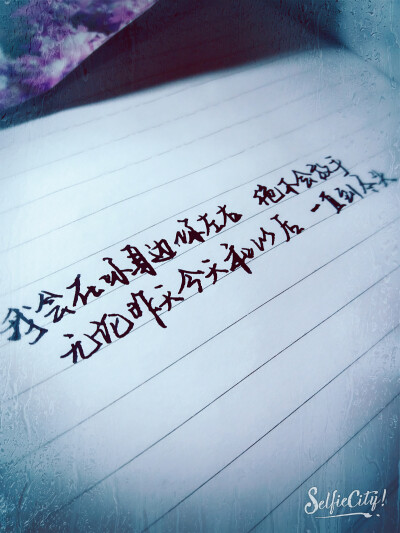 我会在你身边你左右 绝不会放手
无论昨天今天和以后 一直到
SelfieCity!